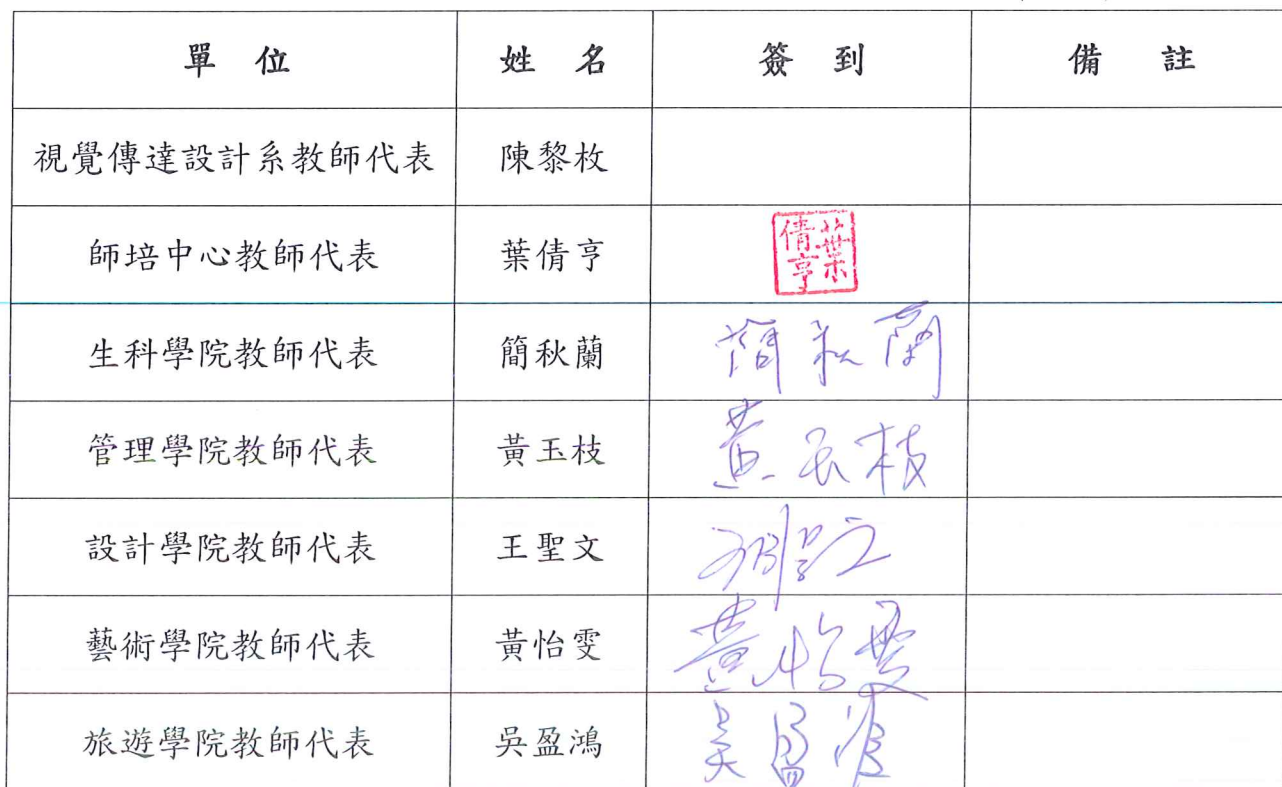 單位 姓名 簽到 備註
視覺傳達設計系教師代表 陳黎枚
師培中心教師代表 葉倩亨 葉倩亨
生科學院教師代表 簡秋蘭 簡秋蘭
管理學院教師代表 黃玉枝 黃玉枝
設計學院教師代表 王聖文
藝術學院教師代表 黃怡雯 黃怡雯
旅遊學院教師代表 吳盈鴻 吳盈鴻